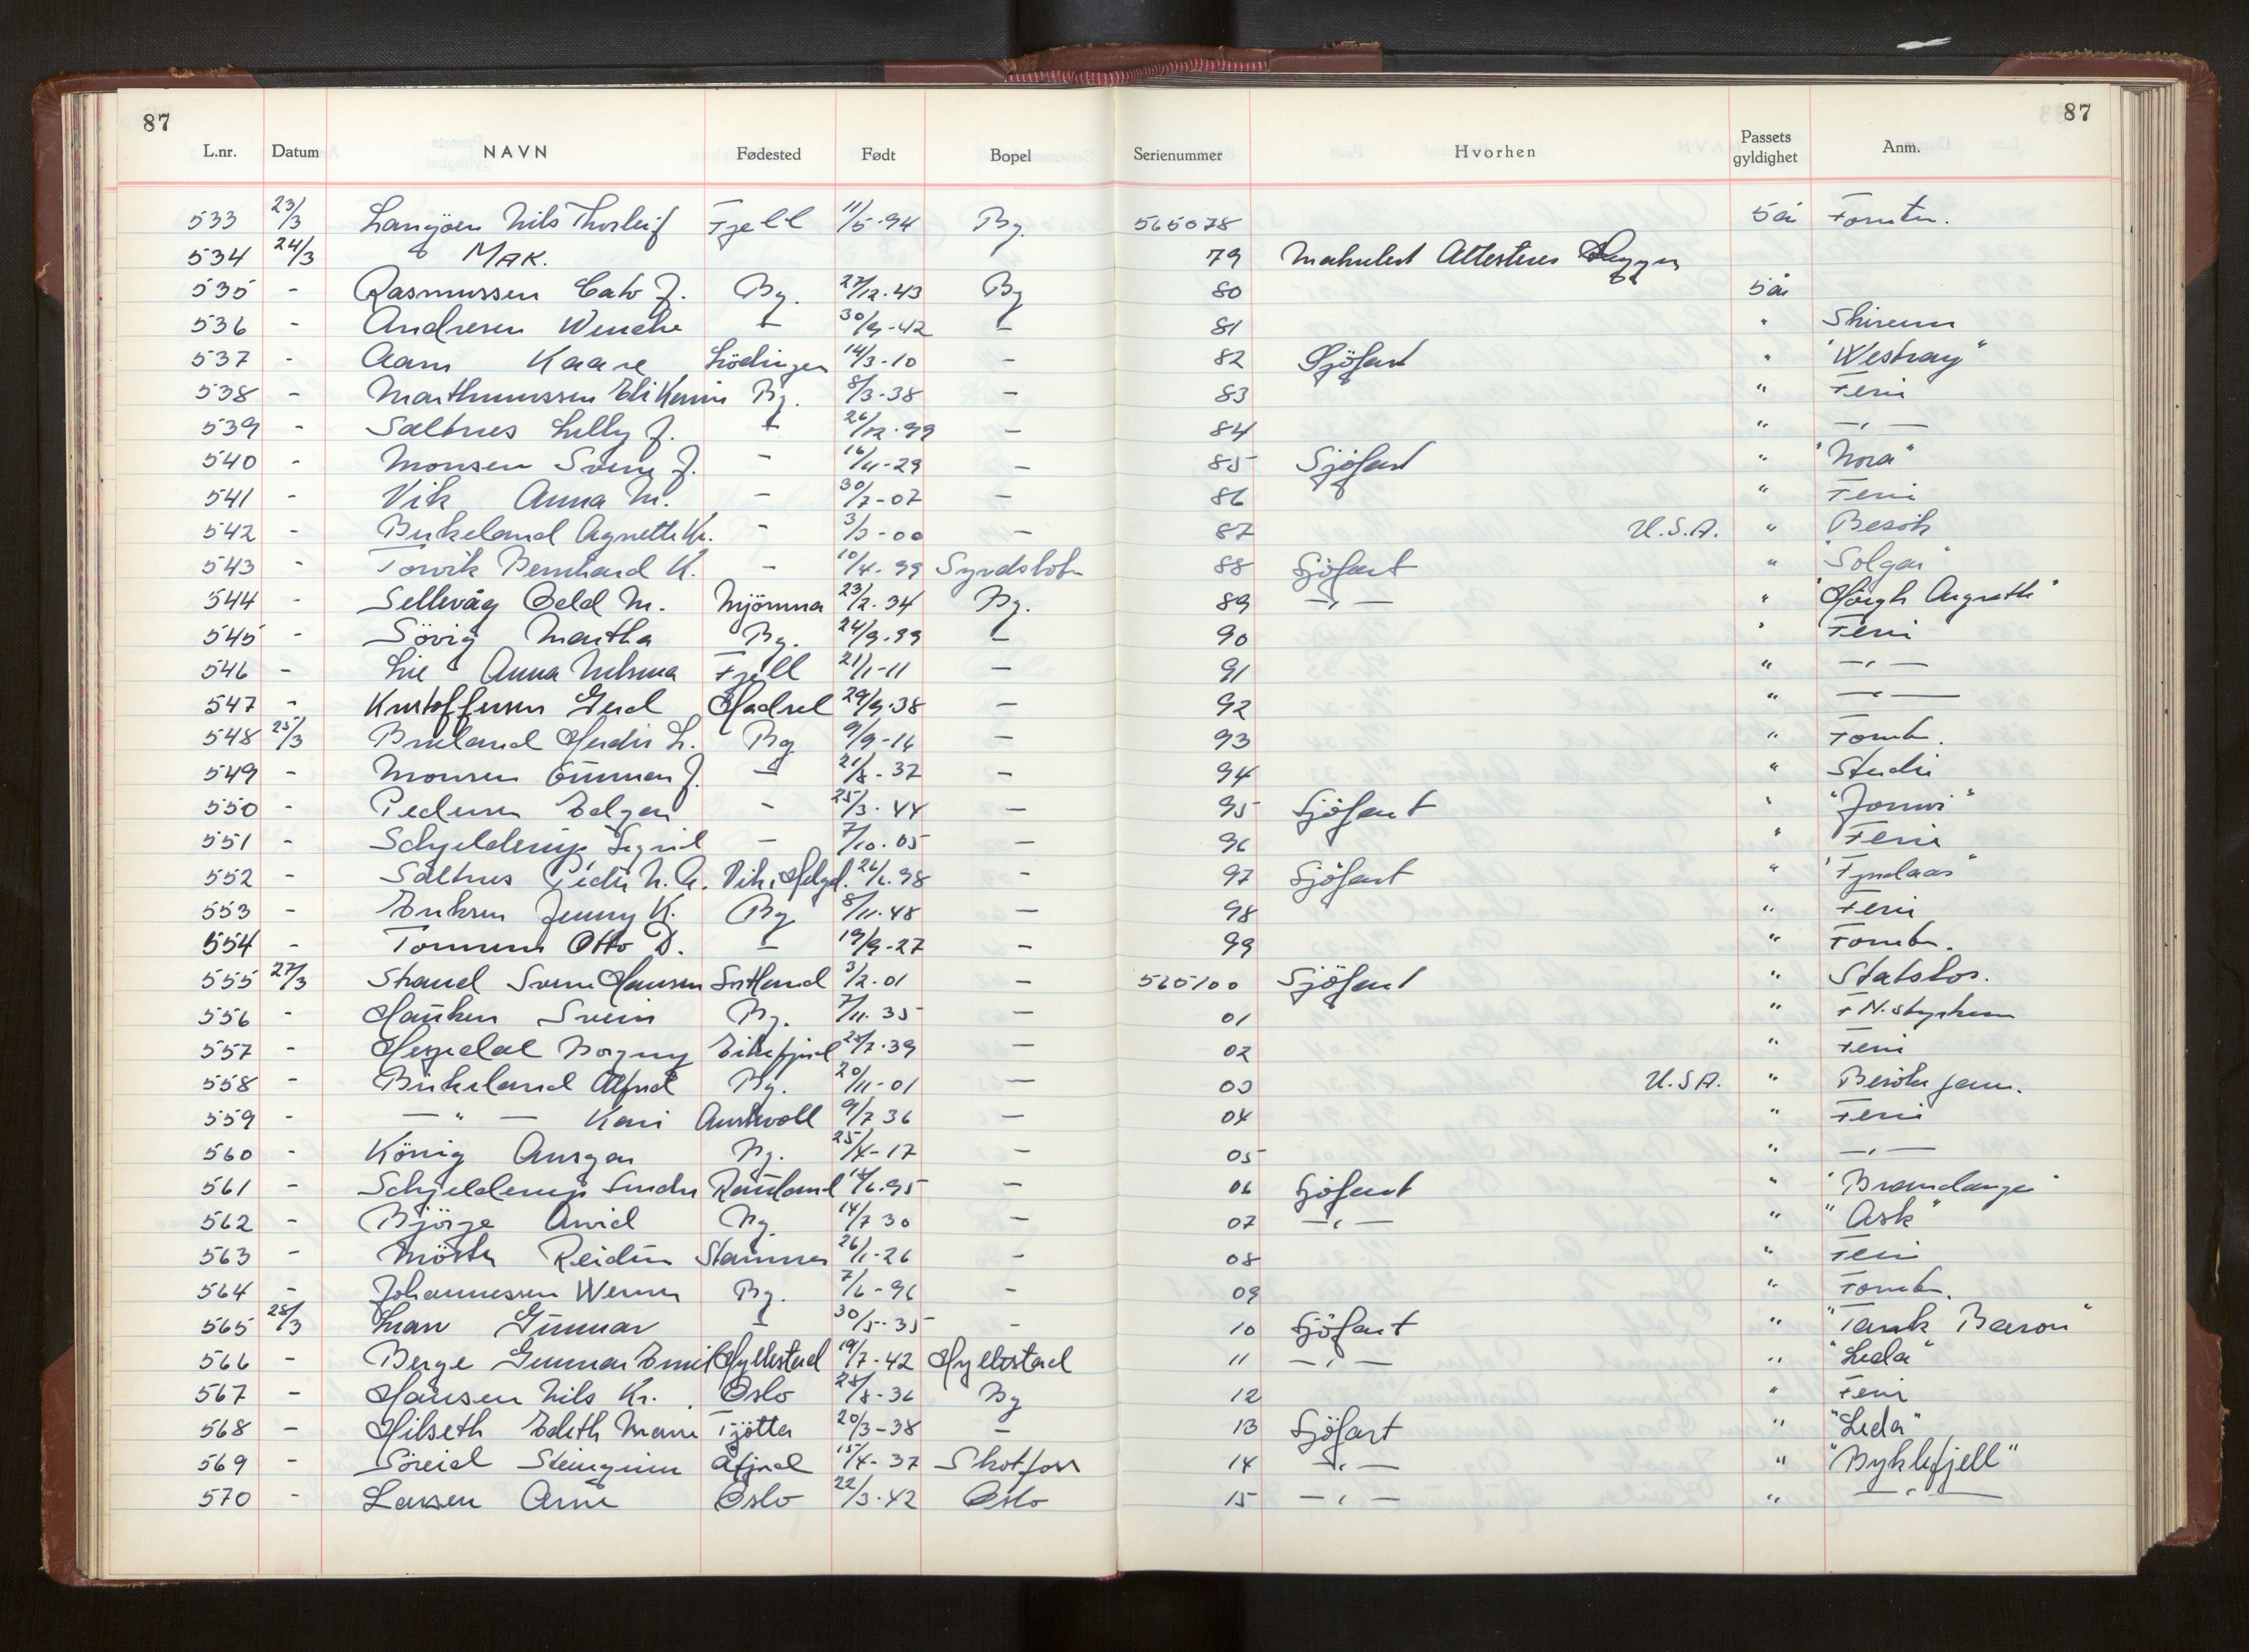 87 87
L.nr. Datum NAVN Fødested Født Bopel Serienummer Hvorhen Passets gyldighet Anm.
533 23/3 Langöen Nils Thorleif Fjell 11/5-94 Bg. 565078 5 år
534 24/3 MAK. 79 Makulert Attesteres
535 - Rasmussen Cato J. Bg. 27/12-43 Bg 80 5 år
536 - Andresen Wenche - 30/9-42 - 81 "
537 - Aam Kaare Lödingen 14/3-10 - 82 Sjöfart " "Westray"
538 - Marthinussen Eli Karin Bg. 8/3-38 - 83 " Ferie
539 - Saltnes Lilly J. - 26/12-99 - 84 " -"-
540 - Monsen Svein J. - 16/11-29 - 85 Sjöfart " "Nora"
541 - Vik Anna M. - 30/7-07 - 86 " Ferie
542 - Birkeland Agnethe Kr. - 3/3-00 - 87 U.S.A. " Besök
543 - Torvik Bernhard K. - 10/4-99 88 Sjöfart "
544 - Sellevåg Odd M. Mjömna 23/2-34 Bg. 89 -"- "
545 - Sövig Martha Bg. 24/9-99 - 90 " Ferie
546 - Lie Anna Fjell 21/1-11 - 91 " -"-
547 - Kristoffersen Gerd Hadsel 29/9-38 - 92 " -"-
548 25/3 Herdis L. Bg 9/9-16 - 93 "
549 - Monsen Gunnar J. - 21/8-37 - 94 " Studie
550 - Pedersen Edgar - 25/3-44 - 95 Sjöfart "
551 - Schjelderup Sigrid - 7/10-05 - 96 " Ferie
552 - Saltnes Peder N. A. Vik, Helgel. 26/6-98 - 97 Sjöfart "
553 - Eriksen Jenny K. Bg 8/11-48 - 98 " Ferie
554 - Otto D. - 19/9-27 - 99 "
555 27/3 Strand Svein Hansen Sortland 3/2-01 - 565100 Sjöfart "
556 - Hauken Svein Bg. 7/11-35 - 01 "
557 - Hespedal Borgny Eikefjord /7-39 - 02 " Ferie
558 - Birkeland Alfred Bg. 20/11-01 - 03 U.S.A. " Besöke fam.
559 - -"- Kari Austevoll 9/7 36 - 04 " Ferie
560 - König Ansgar Bg. 25/4-17 - 05 " -"-
561 - Schjelderup Rauland /6-95 - 06 Sjöfart "
562 - Björge Arvid Bg. 14/7 30 - 07 -"- " "Ask"
563 - Reidun Stamnes 26/1-26 - 08 " Ferie
564 - Johannessen Werner Bg. 7/6-96 - 09 "
565 28/3 Gunnar - 30/5-35 - 10 Sjöfart " "Tank Baron"
566 - Berge Gunnar Emil Hyllestad 19/7-42 Hyllestad 11 -"- " "Leda"
567 - Hansen Nils Kr. Oslo 28/8-36 Bg 12 " Ferie
568 - Hilseth Edith Marie Tjötta 20/3-38 - 13 Sjöfart " "Leda"
569 - Söreid Åfjord 15/4-37 Skotfoss 14 -"- " "Byklefjell"
570 - Larsen Arne Oslo 22/3-42 Oslo 15 -"- " -"-